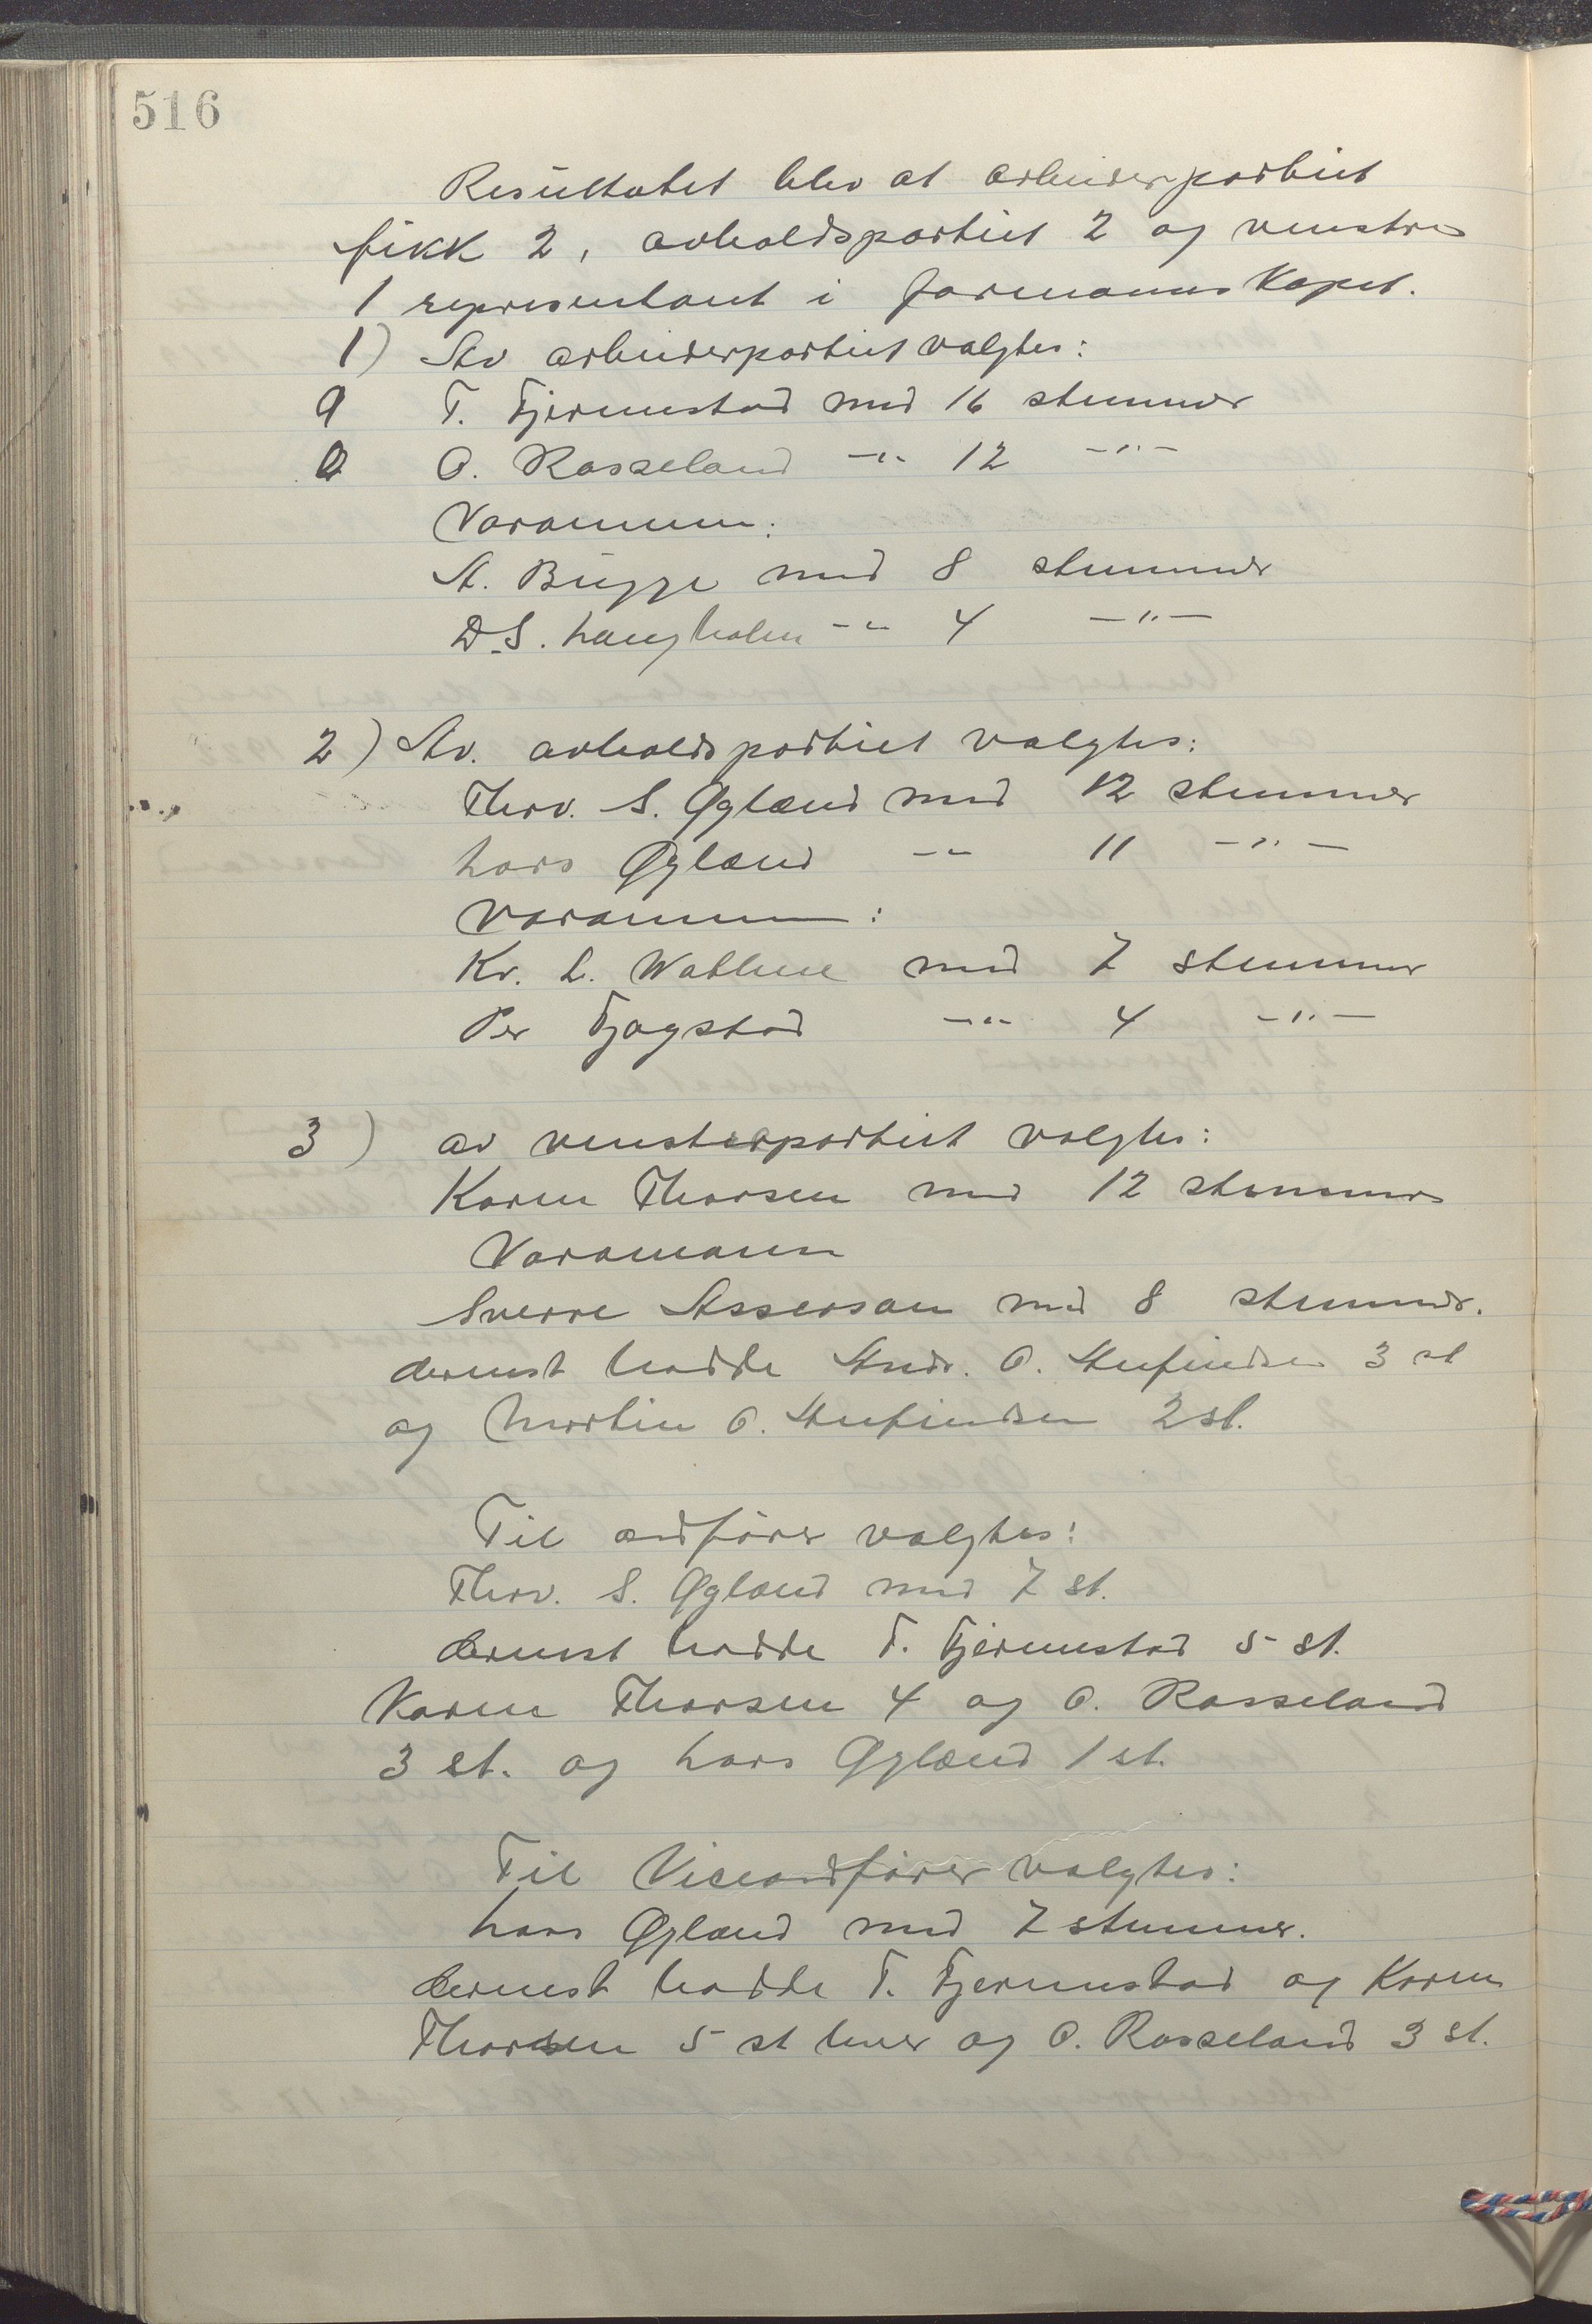 516
Resultatet blev at arbeiderpartiet
fikk 2, avholdspartiet 2 og venstre
1 representant i formannskapet.
1) Av arbeiderpartiet valgtes:
T. Fjermestad med 16 stemmer
O. Rosseland -"- 12 -"-
Varamenn:
A. Bugge med 8 stemmer
D.S. Langholm -"- 4 -"-
2) Av. avholdspartiet valgtes:
Thv. S. Øgland med 12 stemmer
Lars Øgland -"- 11 -"-
varamenn:
Kr. L. Wathne med 7 stemmer
Per Fjogstad -"- 4 -"-
3) av vensterpartiet valgtes:
Karen Thorsen med 12 stemmer
Varamann
Sverre Asserson med 8 stemmer.
dernest hadde Andr. O. Steffensen 3 st
og Martin O. Steffensen 2 st.
Til ordfører valgtes:
Thv. S. Øgland med 7 st.
dernest hadde T. Fjermestad 5 st.
Karen Thorsen 4 og O. Rosseland
3 st. og Lars Øgland 1 st.
Til Viceordfører valgtes:
Lars Øgland med 7 stemmer.
dernest hadde T. Fjermestad og Karen
Thorsen 5 st hver og O. Rosseland 3 st.